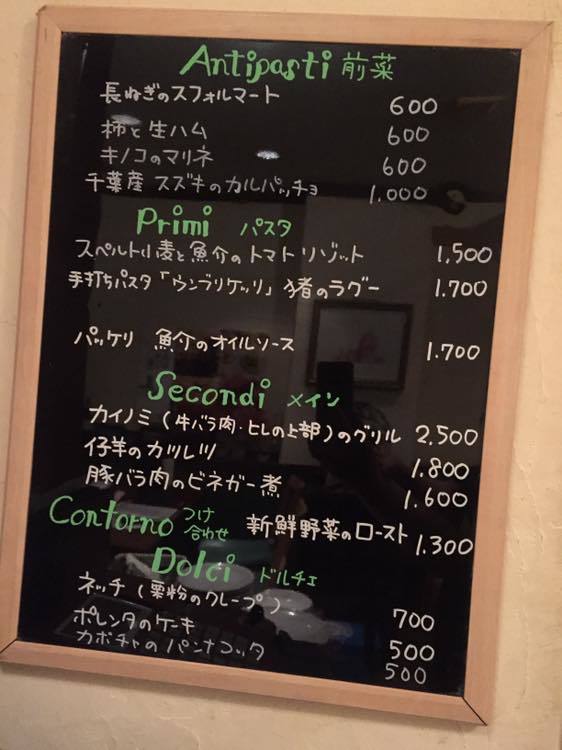 Antipasti 前菜
長ねぎのスフォルマート 600
柿と生ハム 600
キノコのマリネ 600
千葉産 スズキのカルパッチョ 1.000
Primi パスタ
スペルト小麦と魚介のトマトリゾット 1,500
手打ちパスタ「ウンブリケッリ」猪のラグー 1.700
パッケリ 魚介のオイルソース 1.700
Secondi メイン
カイノミ(牛バラ肉・ヒレの上部)のグリル 2,500
仔羊のカツレツ 1.800
豚バラ肉のビネガー煮 1.600
Contorno つけ合わせ 新鮮野菜のロースト 1.300
Dolci ドルチェ
ネッチ(栗粉のクレープ) 700
ポレンタのケーキ 500
カボチャのパンナコッタ 500